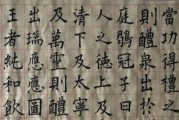 當功得禮宜
則醴泉出於
庭鶡冠子曰
人之德上及
清下及太寧
及萬靈則醴
出瑞應圖曰
王者純和飲